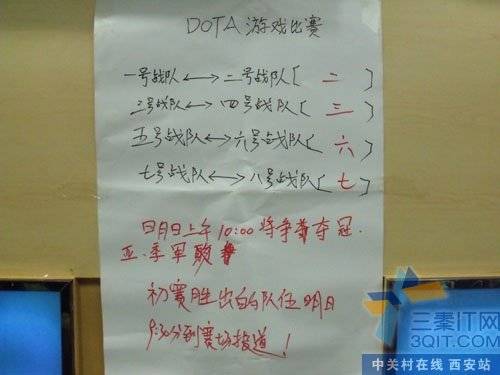 DOTA 游戏比赛
一号战队 ⟷ 二号战队 [ 二 ]
三号战队 ⟷ 四号战队 [ 三 ]
五号战队 ⟷ 六号战队 ( 六 )
七号战队 ⟷ 八号战队 [ 七 ]
明日上午10:00将争夺冠.
亚.季军
初赛胜出的队伍明日
9:30分到赛场报道！
三秦IT网
3QIT.COM
中关村在线 西安站